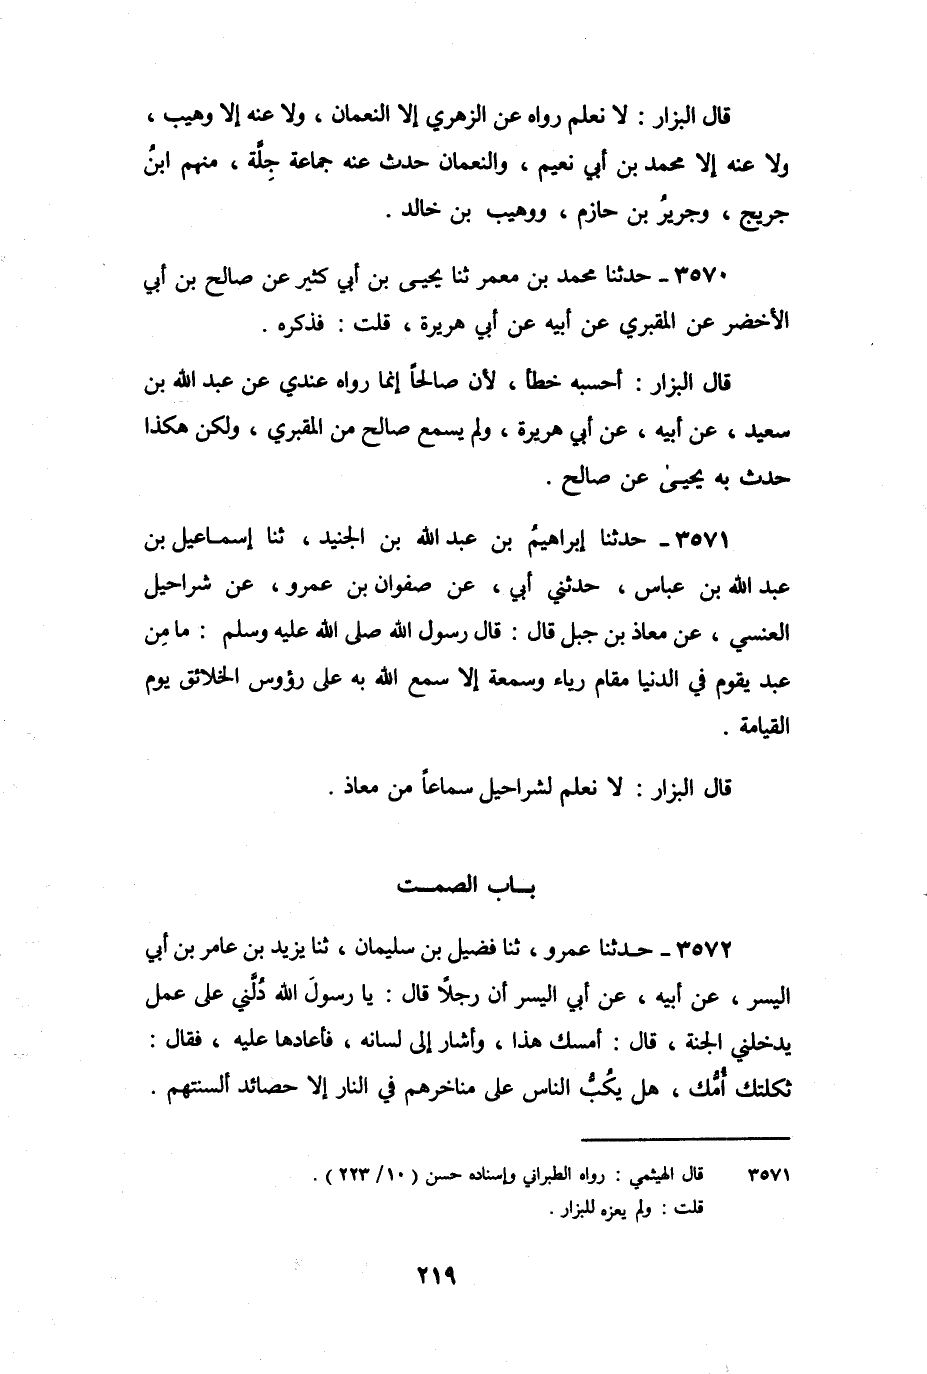 قال البزار : لا نعلم رواه عن الزهري إلا النعمان ، ولا عنه إلا وهيب ،
ولا عنه إلا محمد بن أبي نعيم ، والنعمان حدث عنه جماعة جِلَّة ، منهم ابنُ
جريج ، وجريرُ بن حازم ، ووهيب بن خالد .
٣٥٧٠ ـ حدثنا محمد بن معمر ثنا يحيـى بن أبي كثير عن صالح بن أبي
الأخضر عن المقبري عن أبيه عن أبي هريرة ، قلت : فذكره .
قال البزار : أحسبه خطأ ، لأن صالحاً إنما رواه عندي عن عبد الله بن
سعيد ، عن أبيه ، عن أبي هريرة ، ولم يسمع صالح من المقبري ، ولكن هكذا
حدث به يحيـىٰ عن صالح .
٣٥٧١ ـ حدثنا إبراهيمُ بن عبد الله بن الجنيد ، ثنا إسمـاعيل بن
عبد الله بن عباس ، حدثني أبي ، عن صفوان بن عمرو ، عن شراحيل
العنسي ، عن معاذ بن جبل قال : قال رسول الله صلى الله عليه وسلم : ما مِن
عبد يقوم في الدنيا مقام رياء وسمعة إلا سمع الله به على رؤوس الخلائق يوم
القيامة .
قال البزار : لا نعلم لشراحيل سماعاً من معاذ .
بـاب الصمـت
٣٥٧٢ ـ حـدثنا عمرو ، ثنا فضيل بن سليمان ، ثنا يزيد بن عامر بن أبي
اليسر ، عن أبيه ، عن أبي اليسر أن رجلًا قال : يا رسولَ الله دُلَّني على عمل
يدخلني الجنة ، قال : أمسك هذا ، وأشار إلى لسانه ، فأعادها عليه ، فقال :
ثكلتك أُمُّك ، هل يكُبُّ الناس على مناخرهم في النار إلا حصائد ألسنتهم .
٣٥٧١ قال الهيثمي : رواه الطبراني وإسناده حسن ( ١٠/ ٢٢٣ ) .
قلت : ولم يعزه للبزار .
٢١٩